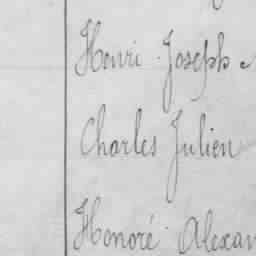 Henri Joseph
Charles Julien
Honoré Alexan